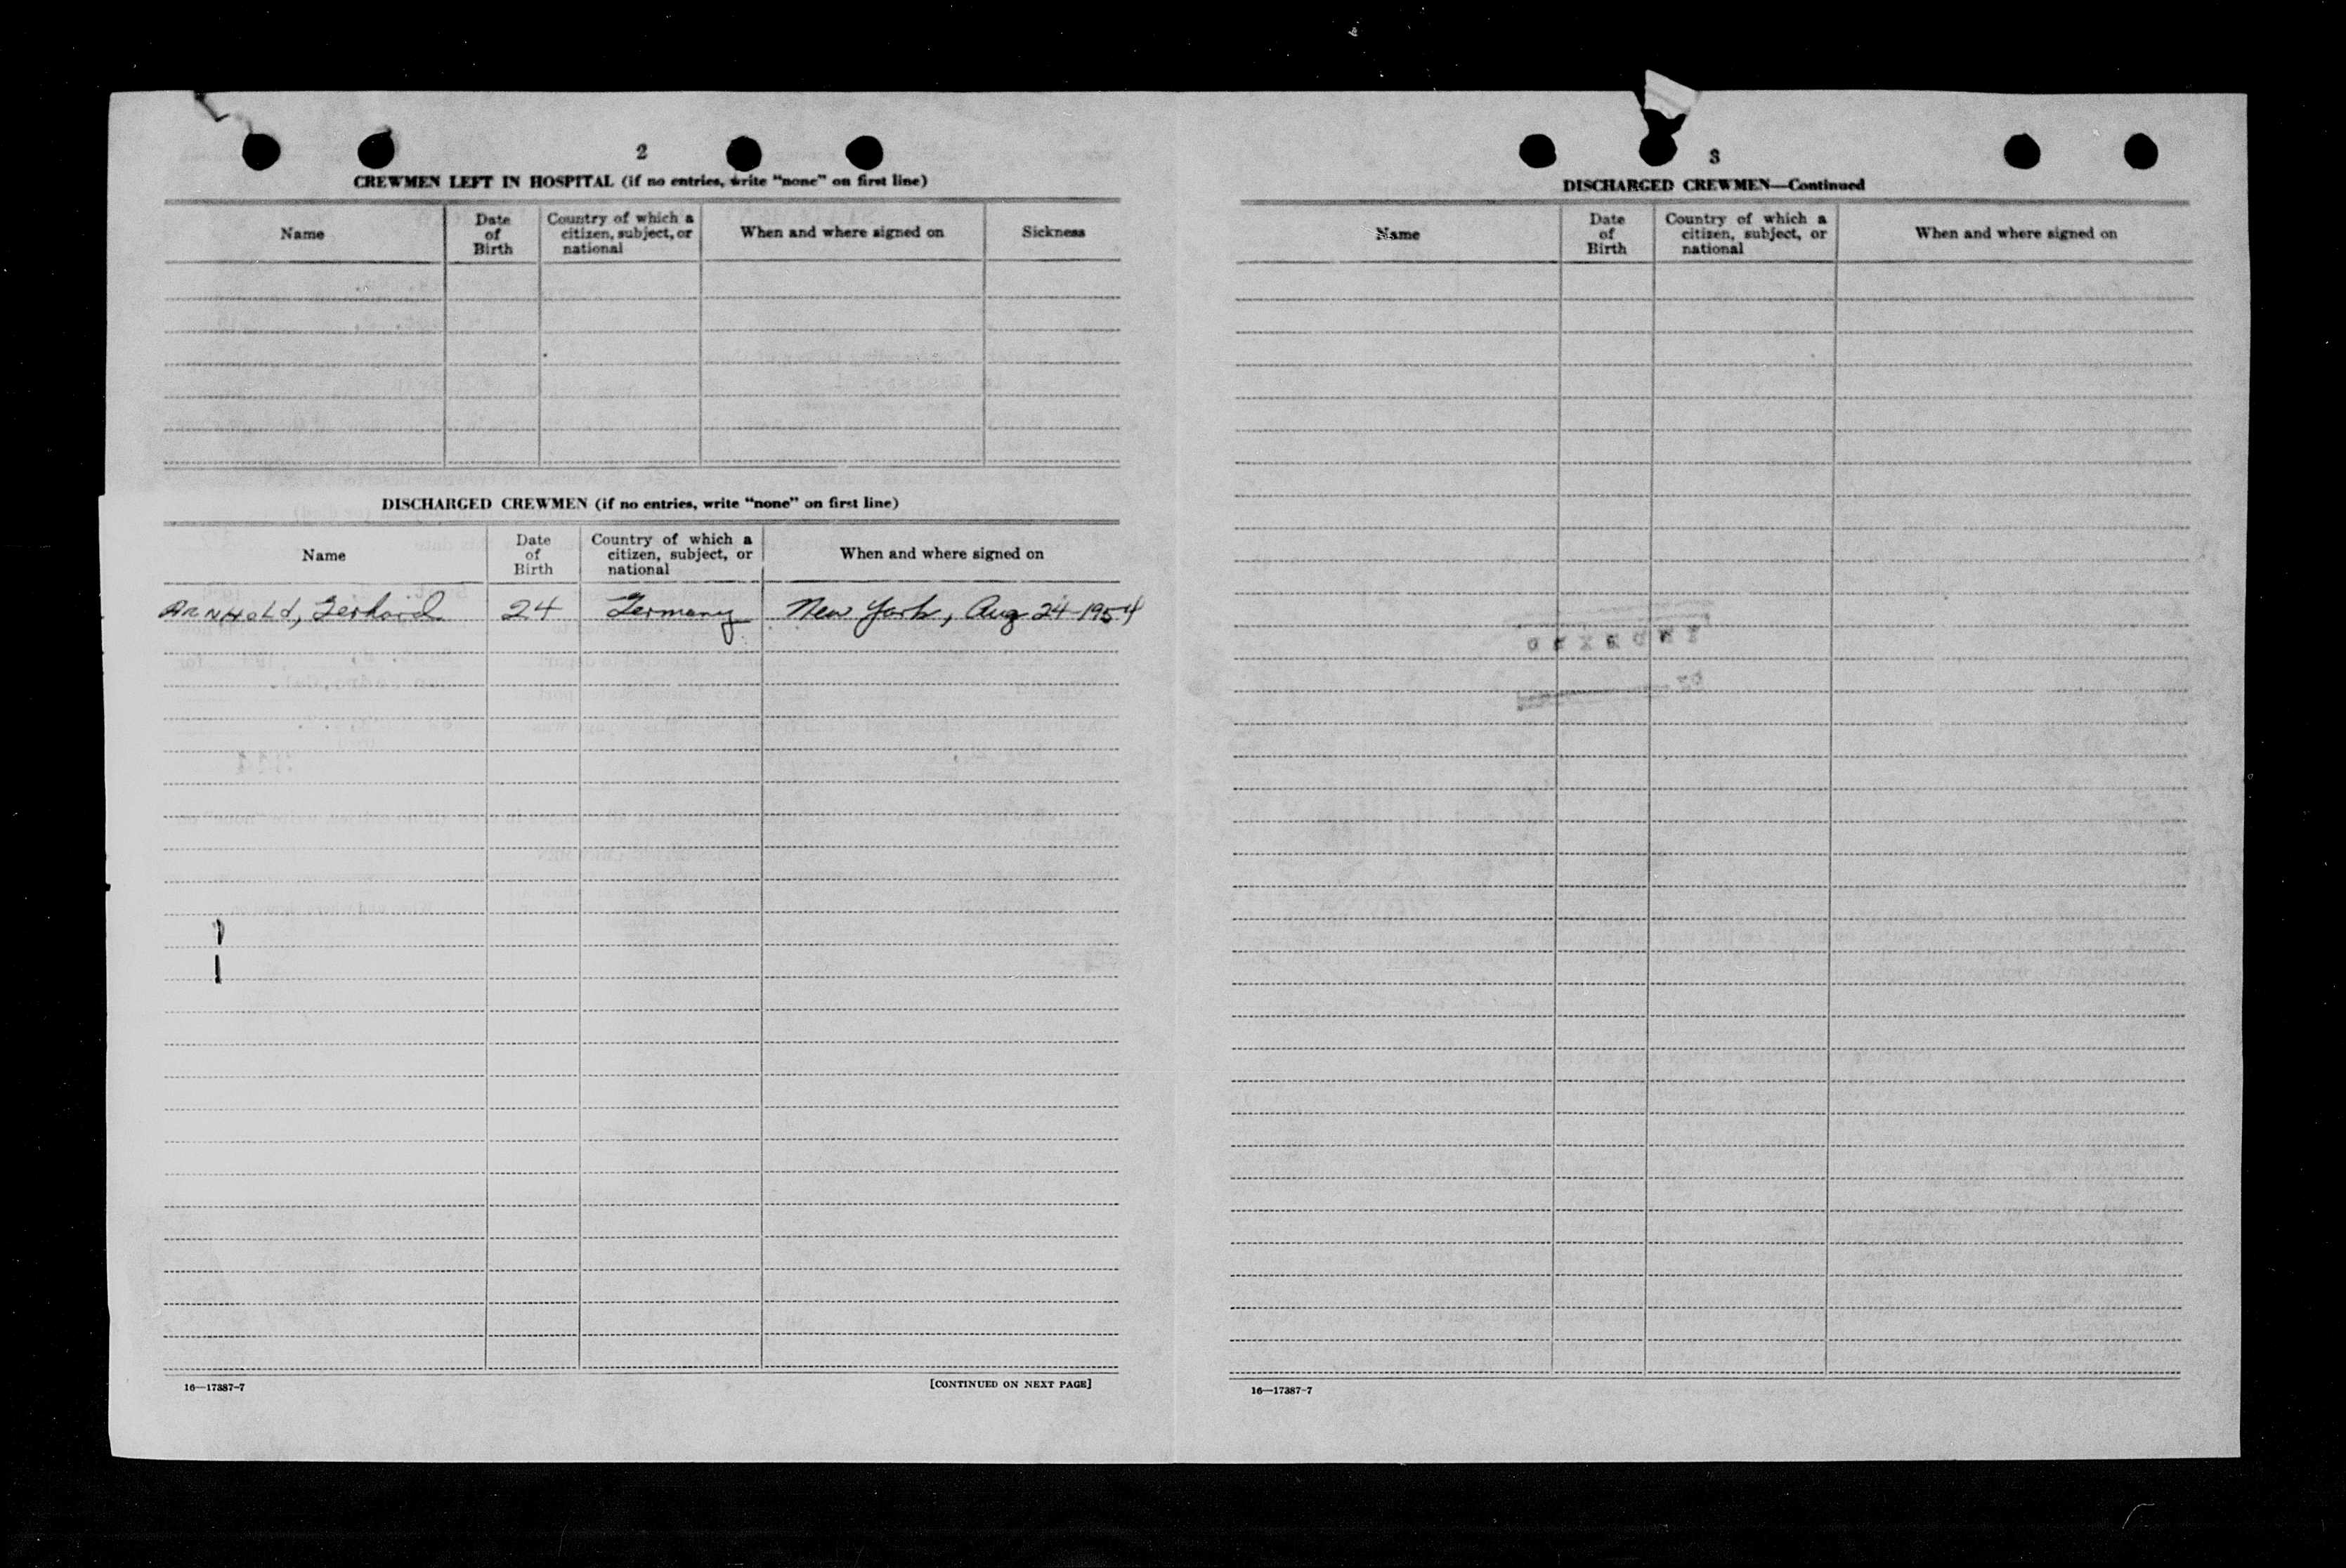 2
CREWMEN LEFT IN HOSPITAL (if no entries, write "none" on first line)
Name
Date of Birth
Country of which a citizen, subject, or national
When and where signed on
Sickness
DISCHARGED CREWMEN (if no entries, write "none" on first line)
Name
Date of Birth
Country of which a citizen, subject, or national
When and where signed on
ARNHOLd, Gerhard 24 Germany New York, Aug 24-1954
16—17387-7
[CONTINUED ON NEXT PAGE]
3
DISCHARGED CREWMEN—Continued
Name
Date of Birth
Country of which a citizen, subject, or national
When and where signed on
16—17387-7